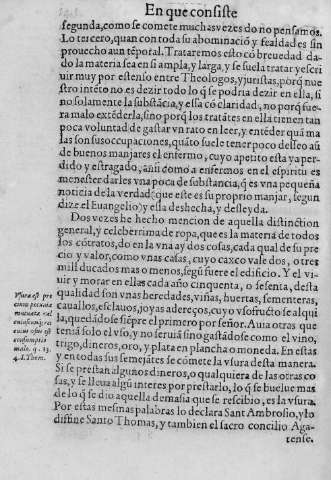 En que consiste
segunda, como se comete muchas vezes do no pensamos.
Lo tercero, quan con toda su abominació y fealdad es sin
prouecho aun tẽporal. Trataremos esto có breuedad da-
do la materia sea en si ampla, y larga, y se suela tratar y escri
uir muy por estenso entre Theologos, y juristas, porq̃ nue
stro intéto no es dezir todo lo q̃ se podria dezir en ella, si
no solamente la substãcia, y essa có claridad, no porq̃ fue-
ra malo extẽderla, sino porq̃ los tratãtes en ella tienen tan
poca voluntad de gastar vn rato en leer, y entẽder quã ma
las son sus occupaciones, quãto suele tener poco desseo aũ
de buenos manjares el enfermo, cuyo apetito esta ya per-
dido y estragado, assi como a enfermos en el espiritu es
menester darles vna poca de substãcia, q̃ es vna pequeña
noticia de la verdad (que este es su proprio manjar, segun
dize el Euangelio) y ella deshecha, y desleyda.
Dos vezes he hecho mencion de aquella distinction
general, y celeberrima de ropa, que es la materia de todos
los cótratos, do en la vna ay dos cosas, cada qual de su pre
cio y valor, como vnas casas, cuyo caxco vale dos, o tres
mill ducados mas o menos, segũ fuere el edificio. Y el vi-
uir y morar en ellas cada año cinquenta, o sesenta, desta
qualidad son vnas heredades, viñas, huertas, sementeras,
cauallos, esclauos, joyas adereços, cuyo vsofructo se alqui
la, quedãdose siẽpre el primero por señor. Auia otras que
tenia solo el vso, y no seruiã sino gastãdose como el vino,
trigo, dineros, oro, y plata en plancha o moneda. En estas
y en todas sus semejãtes se comete la vsura desta manera.
Si se prestan algunos dineros, o qualquiera de las otras co
sas, y se lleua algũ interes por prestarlo, lo q̃ se buelue mas
de lo q̃ se dio aquella demasia que se rescibio, es la vsura.
Por estas mesmas palabras lo declara Sant Ambrosio, y lo
difine Santo Thomas, y tambien el sacro concilio Aga-
tense.
Vsura est pre
mutuata vel
male. q. 13.
4. S. Thom.